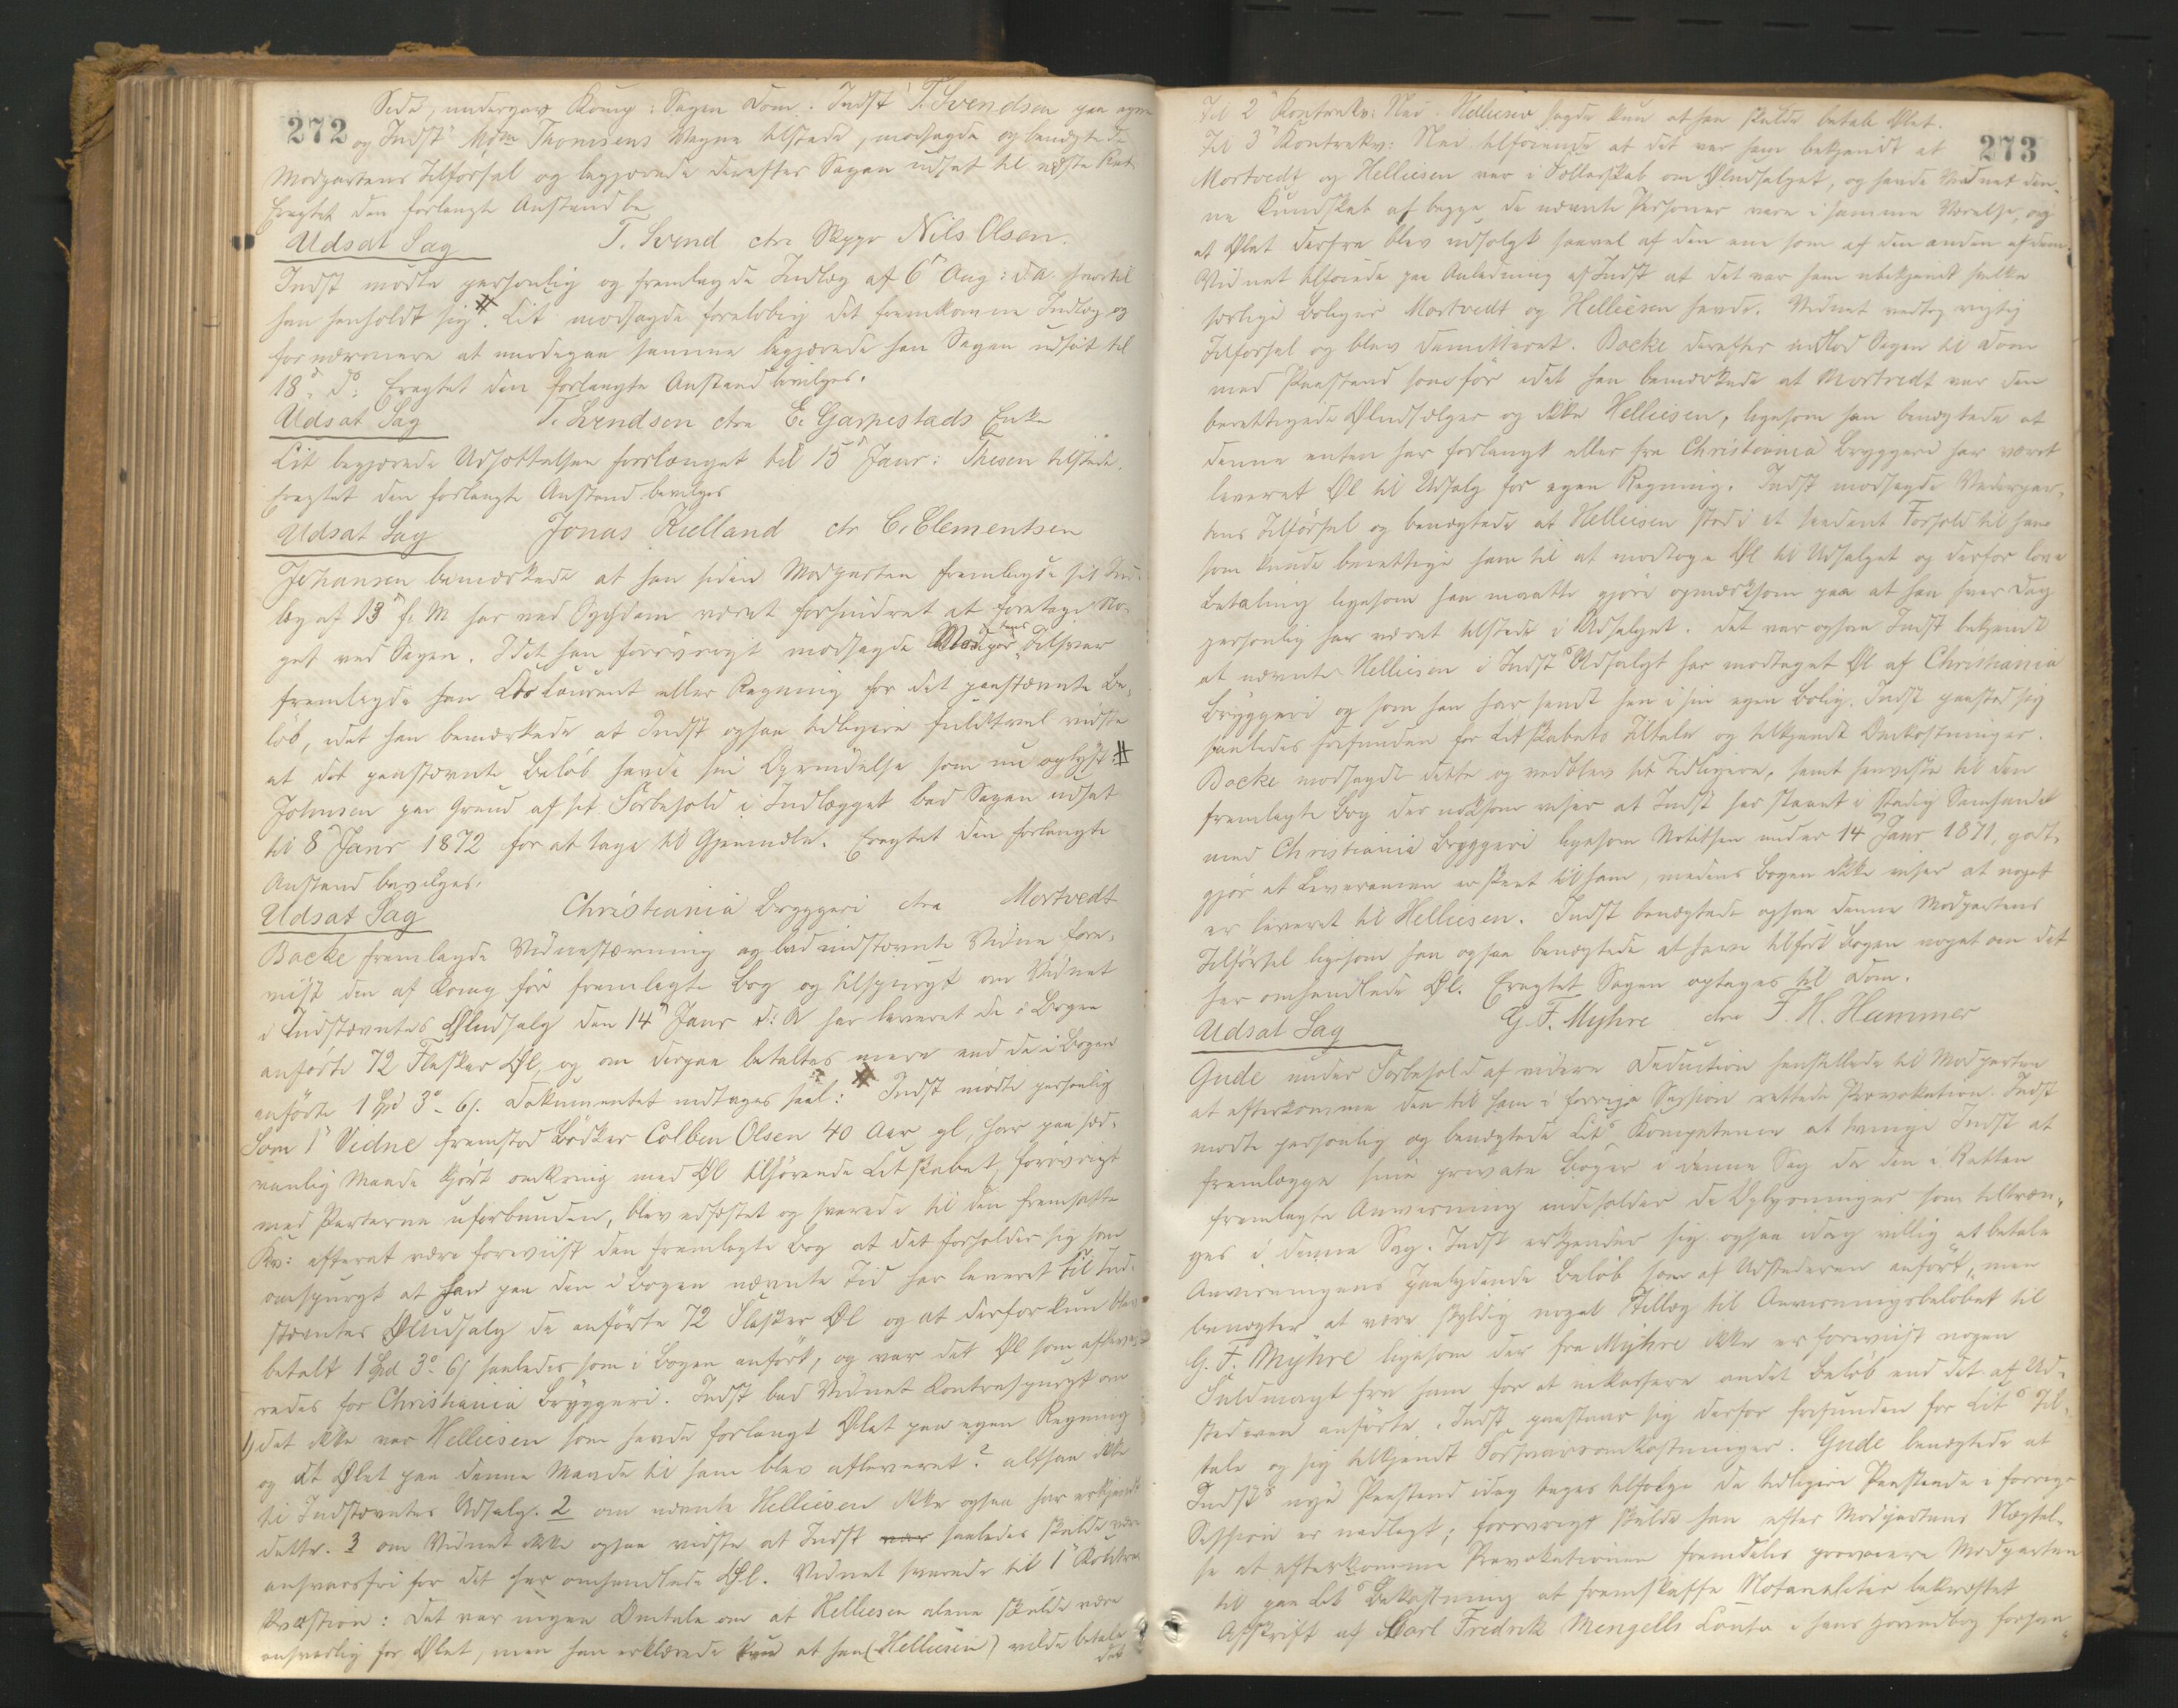 272
Sede, undergav Komp: Sagen Dom. Indst T. Svendsen paa egne
og Indst Mdm Thomsens Vegne tilstede, modsagde og benægtede
Modpartens Tilførsel og begjærede derefter Sagen udsat til næste Ret
Eragtet den forlangte Anstand be
Udsat Sag T. Svend ctr Skipp Nils Olsen.
Indst mødte personlig og fremlagde Indlæg af 6 Aug: d.A. hvortil
han henholdt sig. Cit modsagde foreløbig det fremkomne Indlæg og
for nærmere at imødegaa samme begjærede han Sagen udsat til
18 ds: Eragtet den forlangte Anstand bevilges.
Udsat Sag T. Svendsen ctra E. Garpestads Enke
Cit begjærede Udsættelsen forlænget til 15 Janr: Thesen tilstede.
Eragtet den forlangte Anstand bevilges
Udsat Sag Jonas Kielland ctr C. Clementsen
Johansen bemærkede at han siden Modparten fremlagde sit Ind-
læg af 13 f. M har ved Sygdom været forhindret at foretage No-
get ved Sagen. Idet han forøvrigt modsagde Modpartens Tilsvar
fremlagde han Courant eller Regning for det paastævnte Be-
løb, idet han bemærkede at Indst ogsaa tidligere fuldtvel vidste
at det paastævnte Beløb havde sin Oprindelse som nu oplyst #
Johnsen paa Grund af sit Forbehold i Indlægget bad Sagen udsat
til 8 Janr 1872 for at tage til Gjenmæle. Eragtet den forlangte
Anstand bevilges.
Udsat Sag Christiania Bryggeri ctra Mortvedt
Backe fremlagde Vidnestævning og bad indstævnte Vidne fore-
vist den af Komp før fremlagte Bog og tilspurgt om Vidnet
i Indstævntes Øludsalg den 14 Janr d: A har leveret de i Bogen
anførte 72 Flasker Øl, og om derpaa betaltes mere end de i Bogen
anførte 1 Spd 3 - 6. Dokumentet indtages saal: # Indst mødte personlig
Som 1 Vidne fremstod Bødker Colben Olsen 40 Aar gl, har paa sæd-
vanlig Maade kjørt omkring med Øl tilhørende Citskabet, forøvrigt
med Parterne uforbunden, blev edfæstet og svarede til den fremsatte
Kv: efterat være foreviist den fremlagte Bog at det forholder sig som
omspurgt at han paa den i Bogen nævnte Tid har leveret til Ind-
stævntes Øludsalg de anførte 72 Flasker Øl og at derfor kun blev
betalt 1 Spd 3 6 saaledes som i Bogen anført, og var det Øl som afleve-
redes for Christiania Bryggeri. Indst bad Vidnet Kontraspurgt om
1, det ikke var Helliesen som havde forlangt Ølet paa egen Regning
og at Ølet paa denne Maade til ham blev afleveret? altsaa ikke
til Indstævntes Udsalg. 2 om nævnte Helliesen ikke ogsaa har erkjendt
dette. 3 om Vidnet ikke ogsaa vidste at Indst saaledes skulde være
ansvarsfri for det her omhandlede Øl. Vidnet svarede til 1 Kontra
Kvæstion: Det var ingen Omtale om at Helliesen alene skulde være
ansvarlig for Ølet, men han erklærede kun at han (Helliesen) vilde betale
det
273
Til 2 Kontrakv: Nei. Helliesen sagde kun at han skulde betale Ølet.
Til 3 Kontrakv: Nei tilføiende at det var ham bekjendt at
Mortvedt og Helliesen var i Fællesskab om Øludsalget, og havde Vidnet den-
ne Kundskab af begge de nævnte Personer vare i samme Værelse, og
at Ølet derfra blev udsolgt saavel af den ene som af den anden af dem.
Vidnet tilføiede paa Anledning af Indst at det var ham ubekjendt hvilke
særlige Boliger Mortvedt og Helliesen havde. Vidnet vedtog rigtig
Tilførsel og blev demitteret. Backe derefter indlod Sagen til Dom
med Paastand som før idet han bemærkede at Mortvedt var den
berettigede Øludsælger og ikke Helliesen, ligesom han benægtede at
denne enten har forlangt eller fra Christiania Bryggeri har været
leveret Øl til Udsalg for egen Regning. Indst modsagde Vederpar-
tens Tilførsel og benægtede at Helliesen stod i et saadant Forhold til ham
som kunde berettige ham til at modtage Øl til Udsalget og derfor love
Betaling ligesom han maatte gjøre opmærksom paa at han hver Dag
personlig har været tilstede i Udsalget. Det var ogsaa Indst bekjendt
at nævnte Helliesen i Indsts Udsalgt har modtaget Øl af Christiania
Bryggeri og som han har sendt hen i sin egen Bolig. Indst paastod sig
saaledes frifunden for Citskabets Tiltale og tilkjendt Omkostninger.
Backe modsagde dette og vedblev sit Tidligere, samt henviste til den
fremlagte Bog der noksom viser at Indst har staaet i stadig Samhandel
med Christiania Bryggeri ligesom Notitsen under 14 Janr 1871, godt-
gjør at Leverancen er skeet til ham, medens Bogen ikke viser at noget
er leveret til Helliesen. Indst benægtede ogsaa denne Modpartens
Tilførsel ligesom han ogsaa benægtede at have tilført Bogen noget om det
her omhandlede Øl. Eragtet Sagen optages til Dom.
Udsat Sag G. F. Myhre ctra F. H. Hammer
Gude under Forbehold af videre Deduction henstillede til Modparten
at efterkomme den til ham i forrige Session rettede Provokation. Indst
mødte personlig og benægtede Cits Kompetence at tvinge Indst at
fremlægge sine private Bøger i denne Sag da den i Retten
fremlagte Anvisning indeholder de Oplysninger som tiltræn-
ges i denne Sag. Indst erkjender sig ogsaa idag villig at betale
Anvisningens paalydende Beløb som af Udstederen anført, men
benægter at være skyldig noget Tillæg til Anvisningsbeløbet til
G. F. Myhre ligesom der fra Myhre ikke er foreviist nogen
Fuldmagt fra ham for at inkassere andet Beløb end det af Ud-
stederen anførte. Indst paastaar sig derfor frifunden for Cits Til-
tale og sig tilkjendt Forsvarsomkostninger. Gude benægtede at
Indsts nye Paastand idag tages tilfølge da tidligere Paastande i forrige
Session er nedlagt; forøvrigt skulde han efter Modpartens Nægtel-
se at efterkomme Provokationen fremdeles provocere Modparten
til paa Cits Bekostning at fremskaffe Notarialiter bekræftet
Afskrift af Carl Fredrik Mengells Conto i hans Hovedbog forsaa-